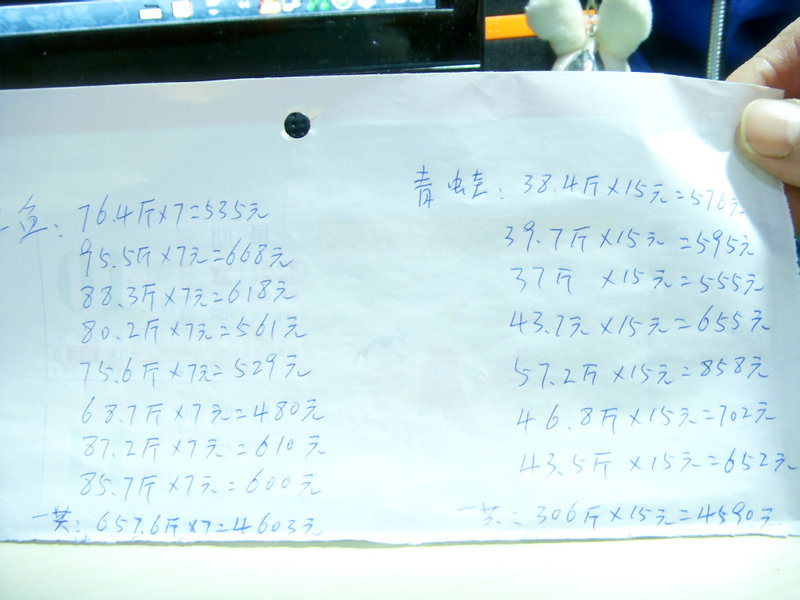 鱼：76.4斤×7=535元
95.5斤×7元=668元
88.3斤×7元=618元
80.2斤×7元=561元
75.6斤×7元=529元
68.7斤×7元=480元
87.2斤×7元=610元
85.7斤×7元=600元
一共：657.6斤×7=4603元
青蛙：38.4斤×15元=576元
39.7斤×15元=595元
37斤×15元=555元
43.7元×15元=655元
57.2斤×15元=858元
46.8斤×15元=702元
43.5斤×15元=652元
一共：306斤×15元=4590元